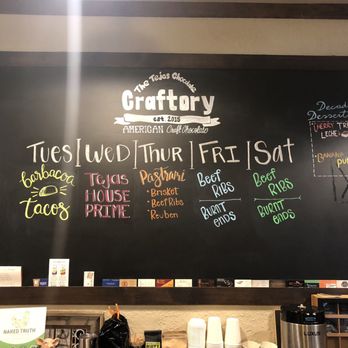 The Tejas Chocolate
Craftory
est. 2015
AMERICAN Craft Chocolate
TUES | WED | THUR | FRI | SAT
barbacoa
tacos
TEJAS
HOUSE
PRIME
Pastrami
• Brisket
• Beef Ribs
• Reuben
BEEF
RIBS
BURNT
ENDS
BEEF
RIBS
BURNT
ENDS
Decad
Dessert
TRE
LECHE
BANANA
PU
NAKED TRUTH